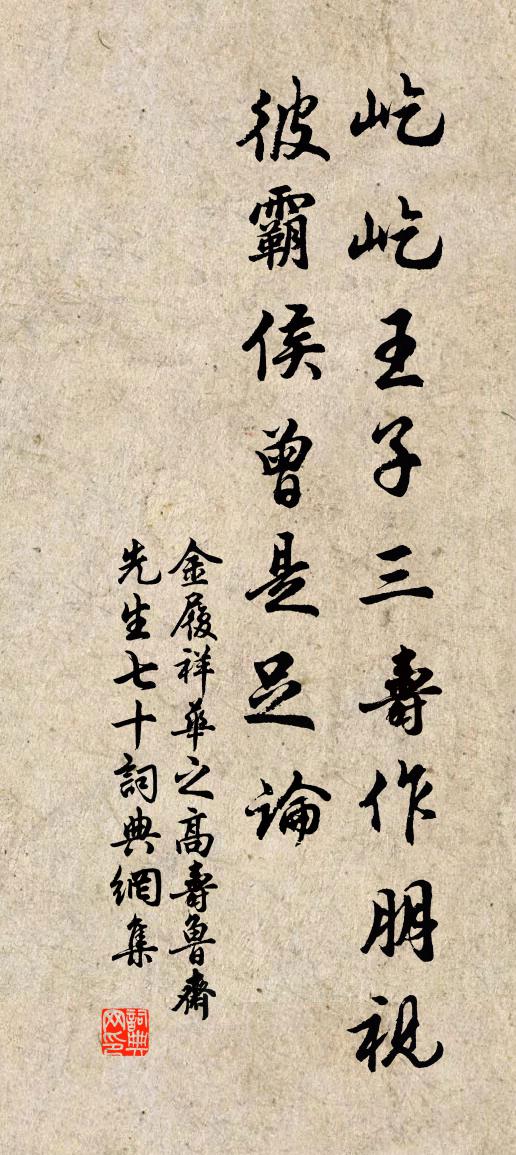 屹屹王子三壽作朋視
彼霸侯曾是足論
金履祥華之高壽魯齋
先生七十詞典網集
詞典
网印